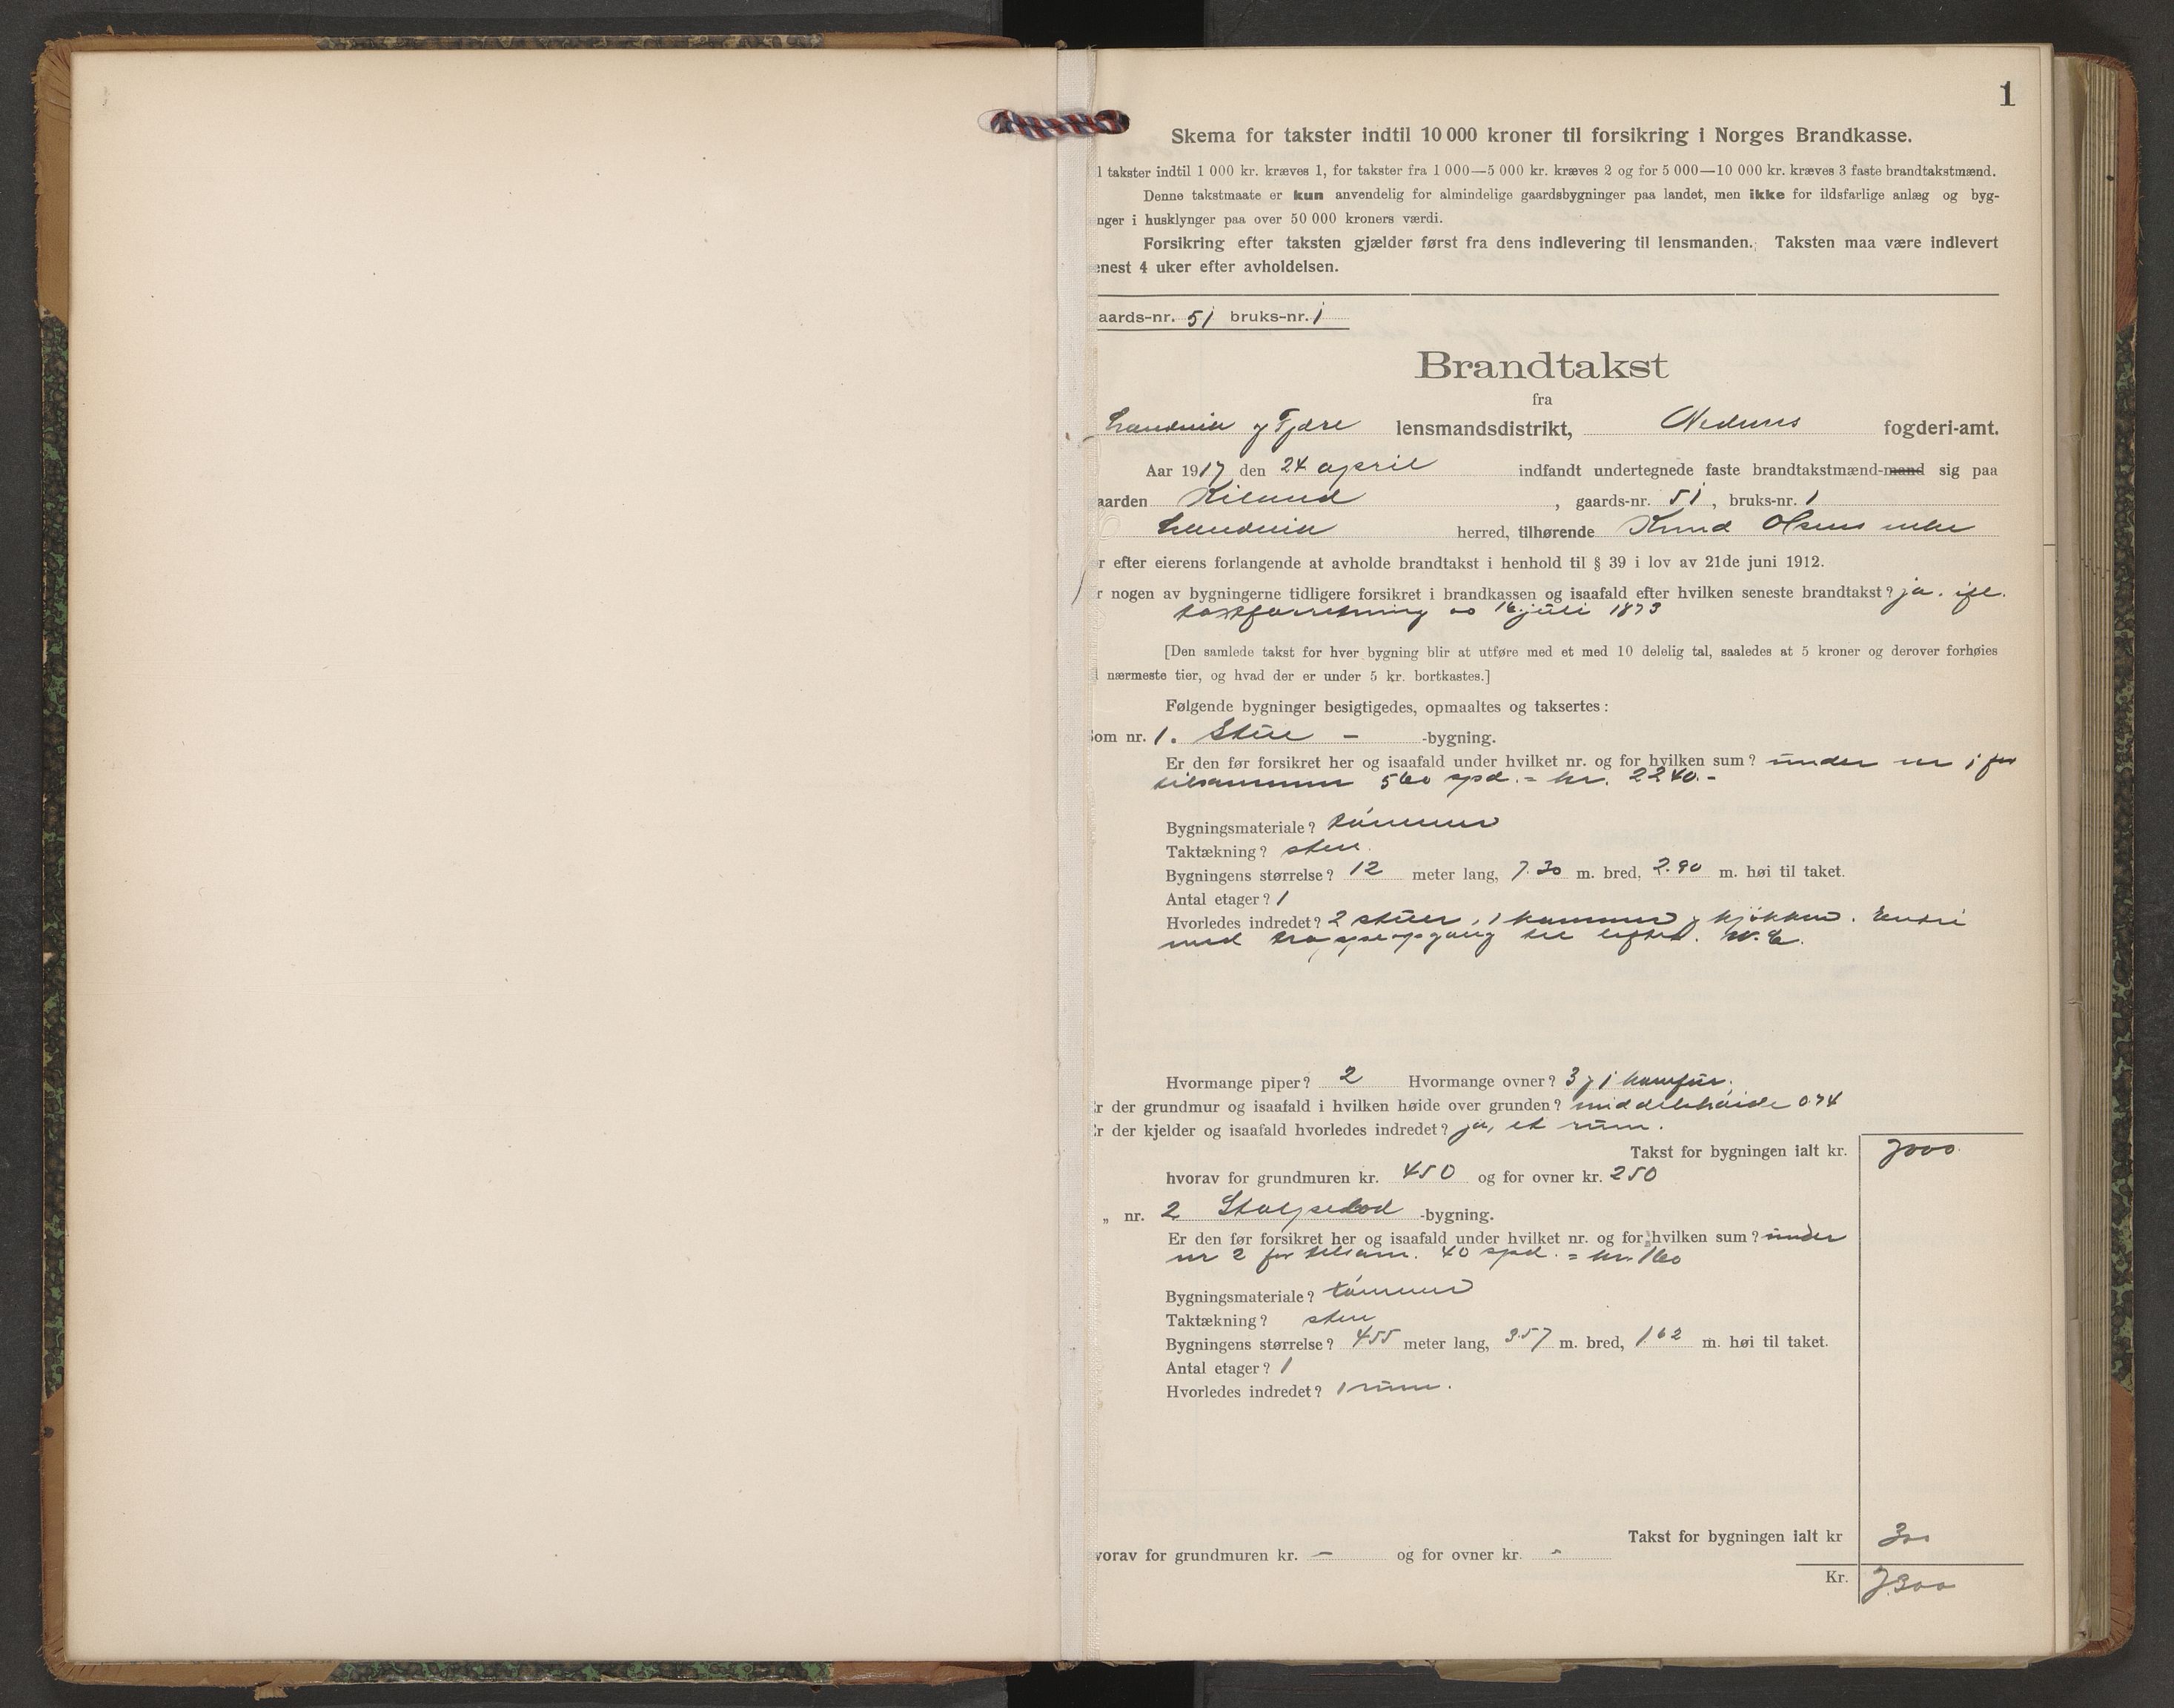 1
Skema for takster indtil 10 000 kroner til forsikring i Norges Brandkasse.
l takster indtil 1 000 kr. kræves 1, for takster fra 1 000—5 000 kr. kræves 2 og for 5 000—10 000 kr. kræves 3 faste brandtakstmænd.
Denne takstmaate er kun anvendelig for almindelige gaardsbygninger paa landet, men ikke for ildsfarlige anlæg og byg-
nger i husklynger paa over 50 000 kroners værdi.
Forsikring efter taksten gjælder først fra dens indlevering til lensmanden. Taksten maa være indlevert
enest 4 uker efter avholdelsen.
aards-nr. 51 bruks-nr. 1
Brandtakst
fra
Landvik og Fjære lensmandsdistrikt, Nedenes fogderi-amt.
Aar 1917 den 24 april indfandt undertegnede faste brandtakstmænd-mand sig paa
aarden Kilund, gaards-nr. 51, bruks-nr. 1
Landvik herred, tilhørende Knud Olsens enke
r efter eierens forlangende at avholde brandtakst i henhold til § 39 i lov av 21de juni 1912.
r nogen av bygningerne tidligere forsikret i brandkassen og isaafald efter hvilken seneste brandtakst? ja. ifl.
takstforretning av 16 juli 1873
[Den samlede takst for hver bygning blir at utføre med et med 10 delelig tal, saaledes at 5 kroner og derover forhøies
l nærmeste tier, og hvad der er under 5 kr. bortkastes.]
Følgende bygninger besigtigedes, opmaaltes og taksertes:
Som nr. 1. Stue - -bygning.
Er den før forsikret her og isaafald under hvilket nr. og for hvilken sum? under nr 1 for
tilsammen 560 spd. = kr. 2240.-
Bygningsmateriale? tømmer
Taktækning? sten
Bygningens størrelse? 12 meter lang, 7.30 m. bred, 2.90 m. høi til taket.
Antal etager? 1
Hvorledes indredet? 2 stuer, 1 kammer og kjøkken. Entré
med trappeopgang til loftet. W.C.
Hvormange piper? 2 Hvormange ovner? 3 og 1 komfur.
Er der grundmur og isaafald i hvilken høide over grunden? middelshøide 0.74
Er der kjelder og isaafald hvorledes indredet? ja, et rum.
Takst for bygningen ialt kr. 7000
hvorav for grundmuren kr. 450 og for ovner kr. 250
„ nr. 2 Stolpebod -bygning.
Er den før forsikret her og isaafald under hvilket nr. og for hvilken sum? under
nr 2 for tilsam. 40 spd. = kr. 160
Bygningsmateriale? tømmer
Taktækning? sten
Bygningens størrelse? 455 meter lang, 3.57 m. bred, 1.62 m. høi til taket.
Antal etager? 1
Hvorledes indredet? 1 rum.
Takst for bygningen ialt kr 300
vorav for grundmuren kr. — og for ovner kr. -
Kr. 7300